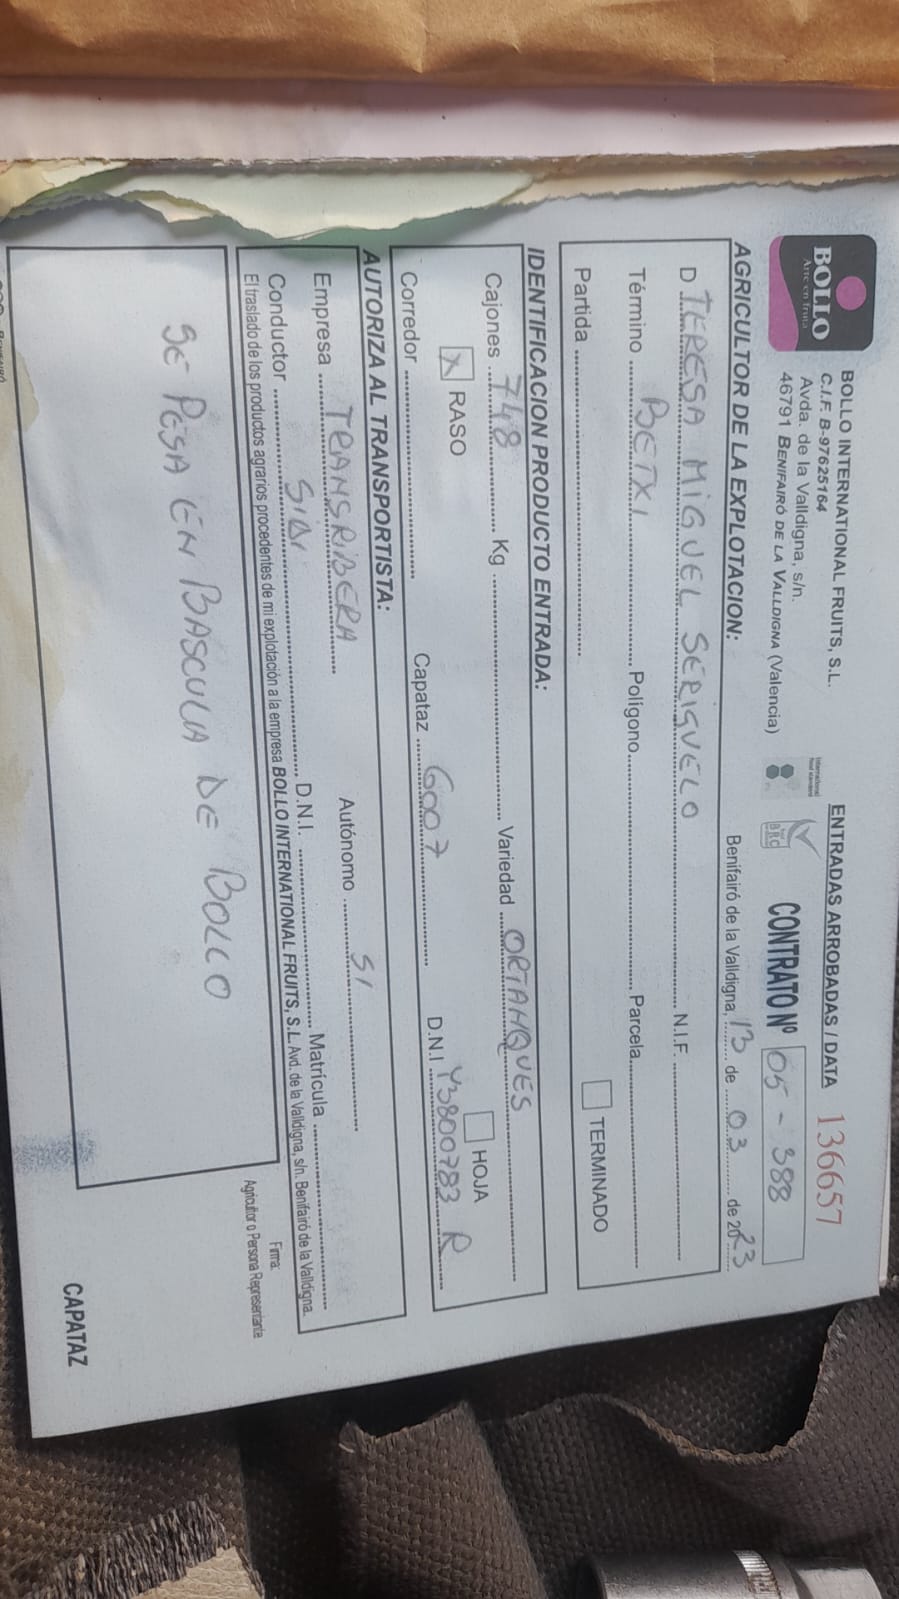 BOLLO
Arte en fruta
BOLLO INTERNATIONAL FRUITS, S.L.
C.I.F. B-97625164
Avda. de la Valldigna, s/n.
46791 BENIFAIRÓ DE LA VALLDIGNA (Valencia)
International
food standard
BRC
ENTRADAS ARROBADAS / DATA 136657
CONTRATO Nº 05 - 388
Benifairó de la Valldigna, 13 de 03 de 2023
AGRICULTOR DE LA EXPLOTACION:
D TERESA MIGUEL SERIGUELO N.I.F.
Término BETXI Polígono Parcela
Partida TERMINADO
IDENTIFICACION PRODUCTO ENTRADA:
Cajones 748 Kg Variedad ORTANQUES
X RASO HOJA
Corredor Capataz 6007 D.N.I Y3800783 R
AUTORIZA AL TRANSPORTISTA:
Empresa TRANSRIBERA Autónomo SI
Conductor SIDI D.N.I. Matrícula
El traslado de los productos agrarios procedentes de mi explotación a la empresa BOLLO INTERNATIONAL FRUITS, S.L. Avd. de la Valldigna, s/n. Benifairó de la Valldigna.
Firma:
Agricultor o Persona Representante
SE PESA EN BASCULA DE BOLLO
CAPATAZ